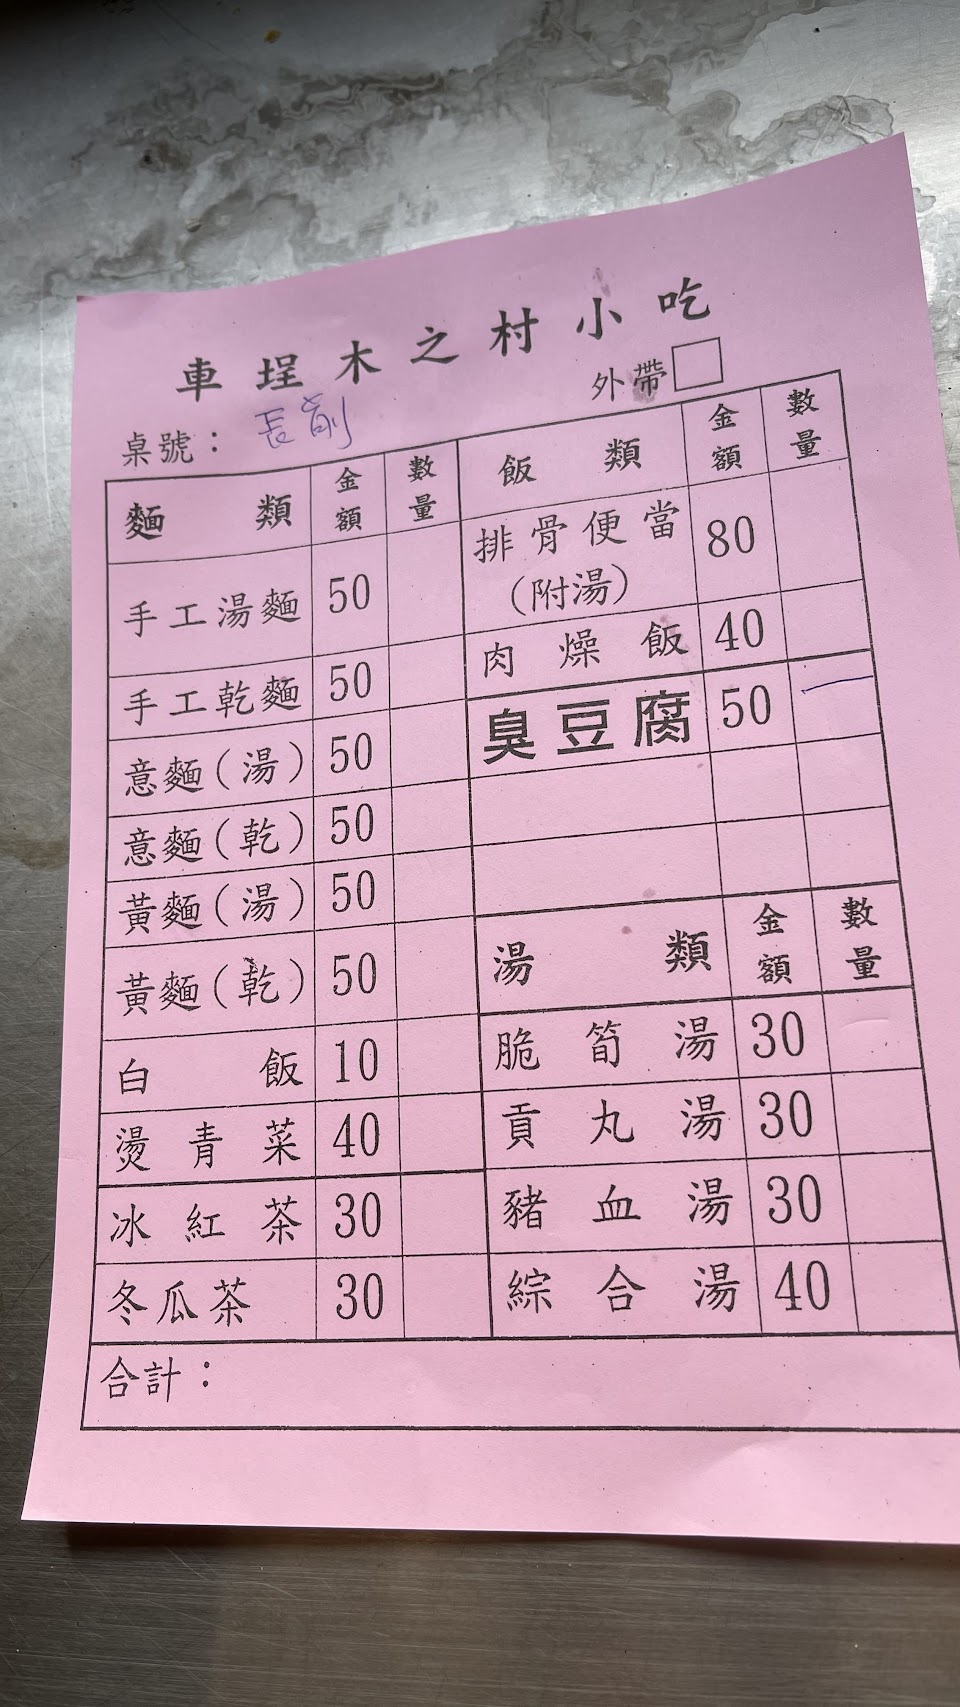 車埕木之村小吃
外帶
桌號： 長前
麵類 金額 數量
手工湯麵 50
手工乾麵 50
意麵(湯) 50
意麵(乾) 50
黃麵(湯) 50
黃麵(乾) 50
白飯 10
燙青菜 40
冰紅茶 30
冬瓜茶 30
飯類 金額 數量
排骨便當 80
(附湯)
肉燥飯 40
臭豆腐 50 一
湯類 金額 數量
脆筍湯 30
貢丸湯 30
豬血湯 30
綜合湯 40
合計：